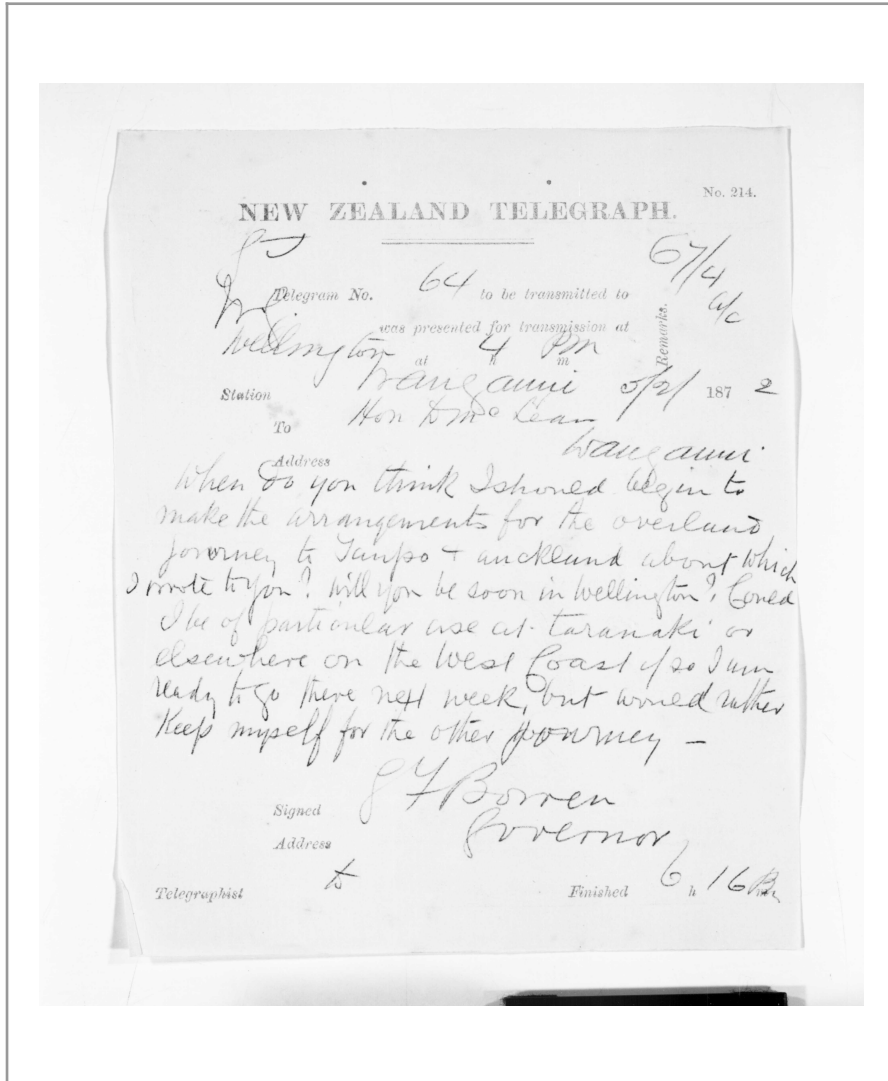 No. 214.
NEW ZEALAND TELEGRAPH.
67/4
a/c
Telegram No. 64 to be transmitted to
Remarks.
was presented for transmission at
Wellington at 4 h PM m
Station Wanganui 5/2/ 1872
To Hon D McLean
Address Wanganui
When do you think I should begin to
make the arrangements for the overland
journey to Taupo + auckland about which
I wrote to you? Will you be soon in Wellington? Could
I be of particular use at Taranaki or
elsewhere on the West Coast if so I am
ready to go there next week, but would rather
Keep myself for the other journey —
Signed G F Bowen
Address Governor
Telegraphist
Finished 6 h 16